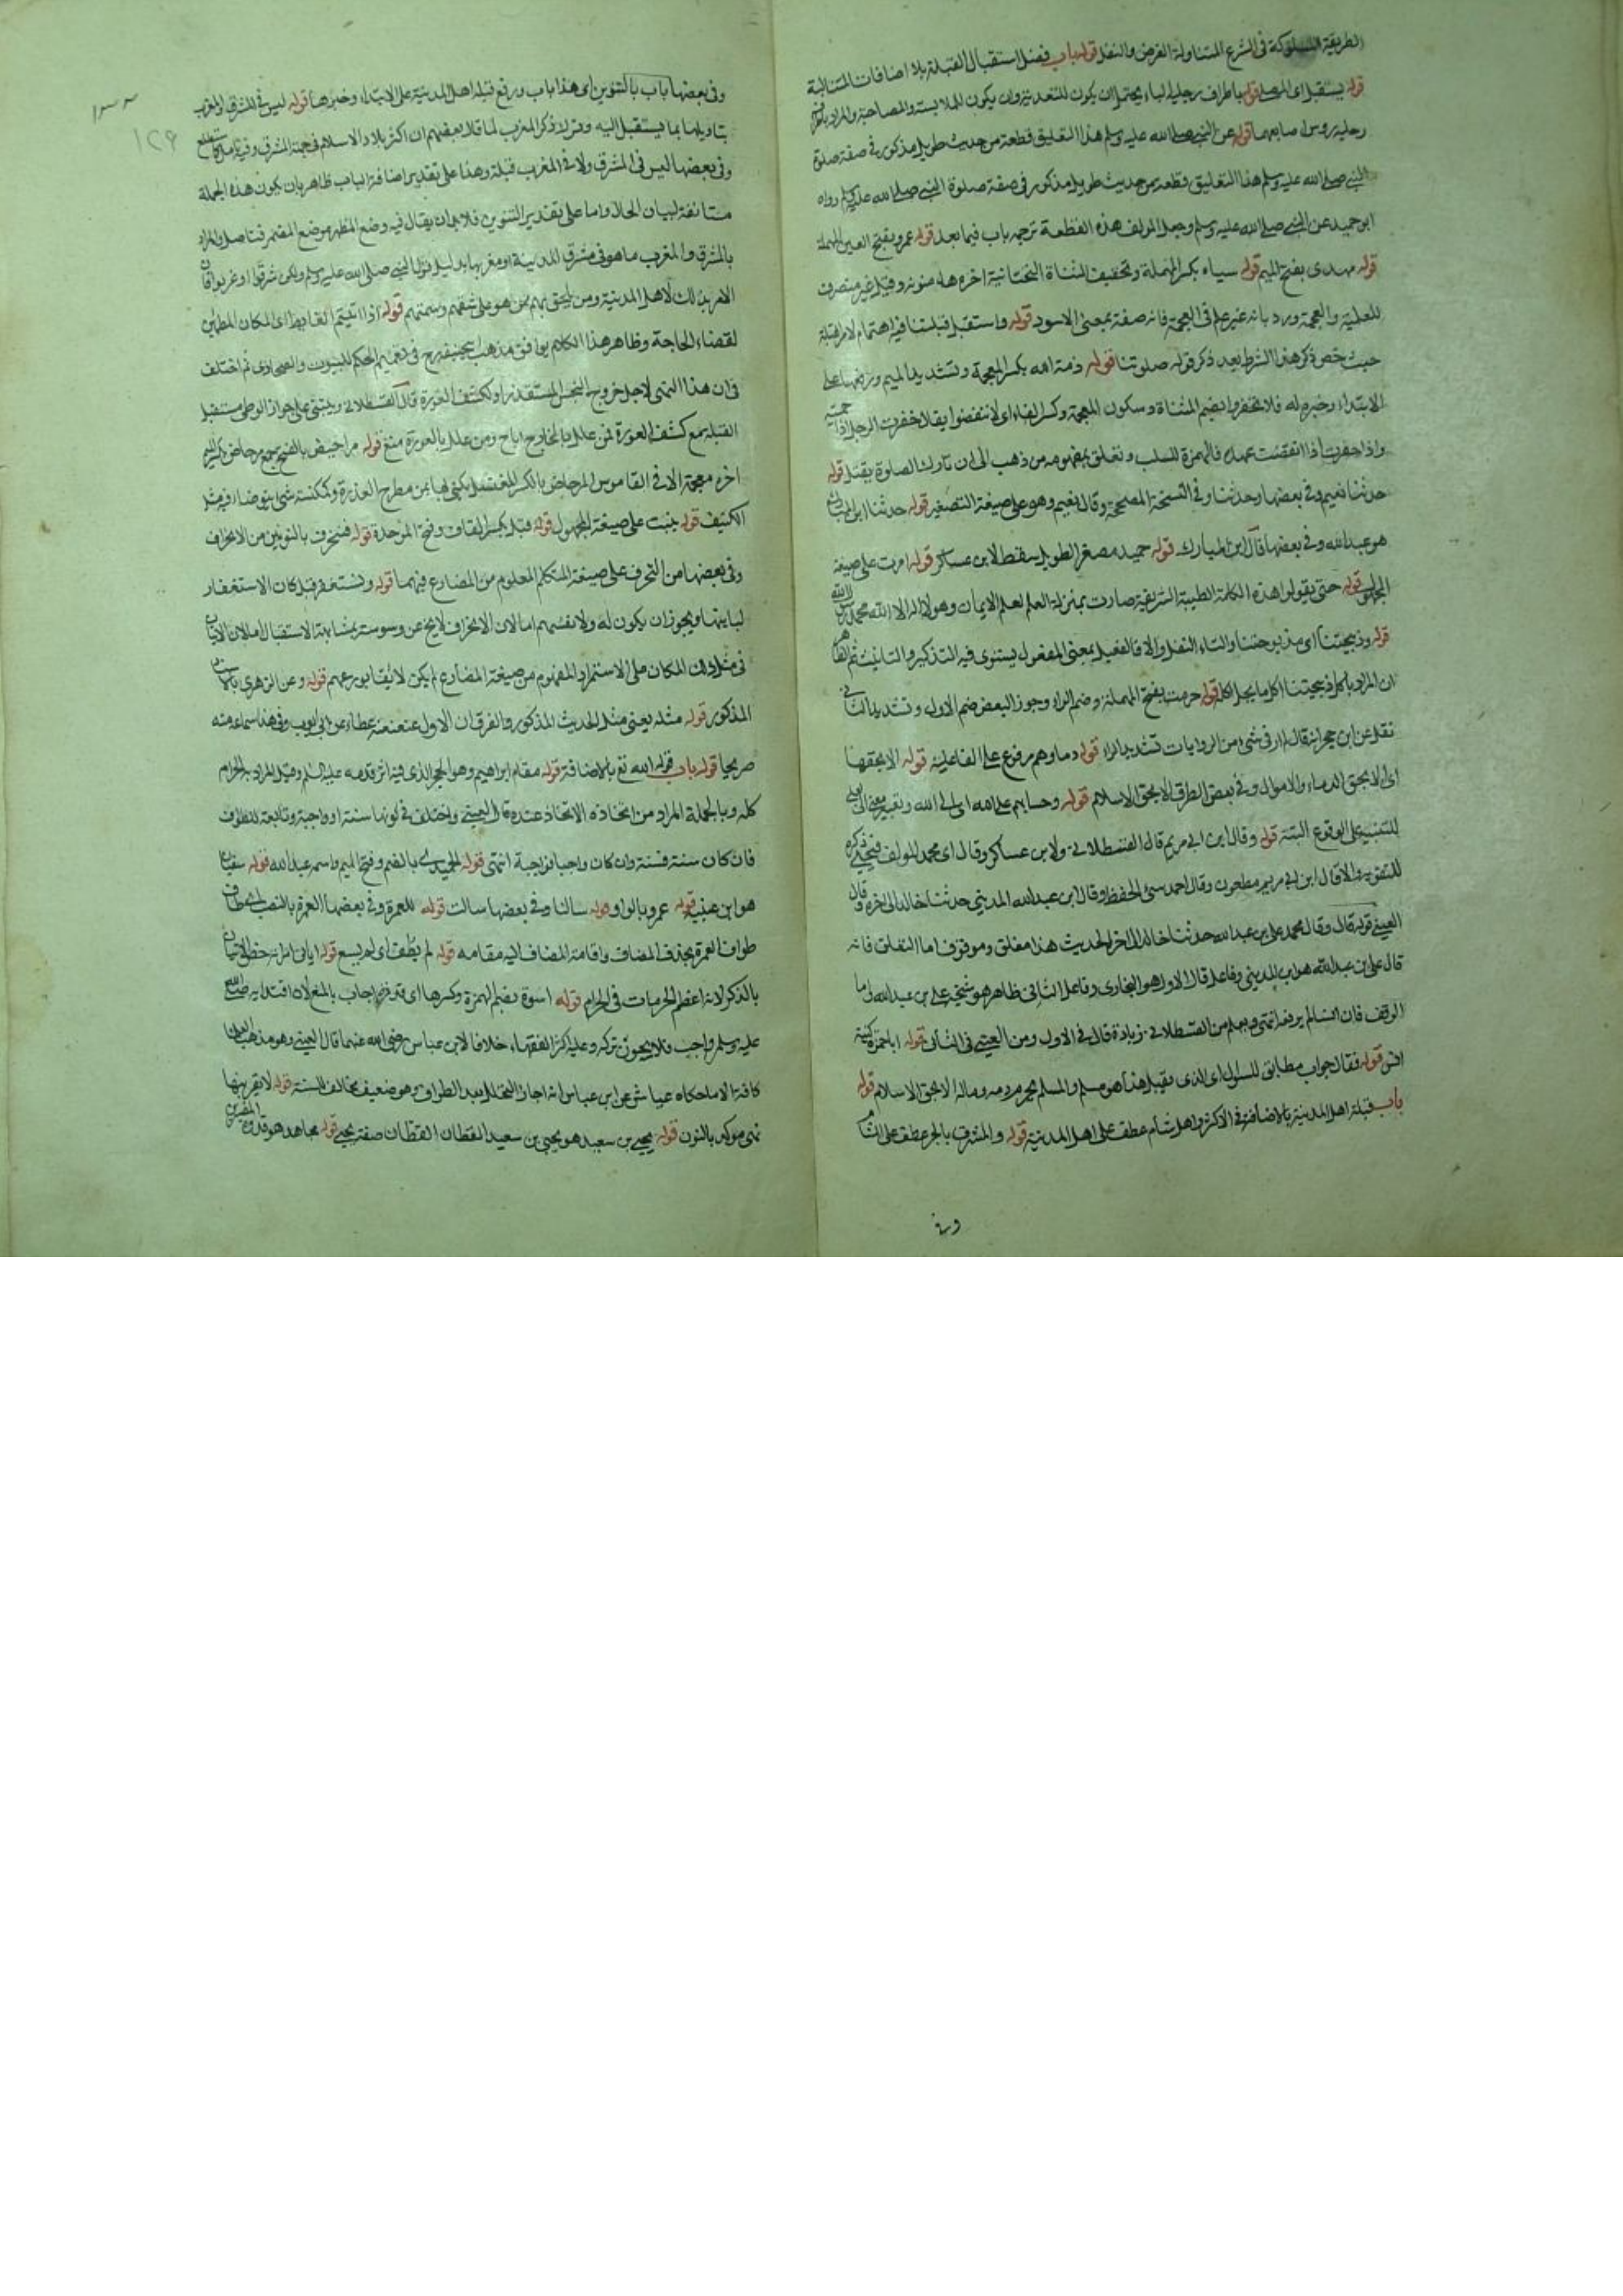 الطريقة المسلوكة فى الشرع المتناولة الفرض والنفل قوله باب فضل استقبال القبلة بلا اضافات المتتالية
قوله يستقبل اى المصلى قوله باطراف رجليه الباء يحتمل ان يكون للتعدية وان يكون للملابسة والمصاحبة والمراد باطراف
رجليه روس اصابعهما قوله عن النبى صلى الله عليه وسلم هذا التعليق قطعة من حديث طويل مذكور فى صفة صلوة
النبى صلى الله عليه وسلم هذا التعليق قطعة من حديث طويل مذكور فى صفة صلوة النبى صلى الله عليه وسلم رواه
ابو حميد عن النبى صلى الله عليه وسلم وجعل المولف هذه القطعة ترجمة باب فيما بعد قوله عمرو بفتح العين المهملة
قوله مهدى بفتح الميم قوله سياه بكسر المهملة وتخفيف المثناة التحتانية اخره هاء منونة وقيل غير منصرف
للعلمية والعجمة ورد بانه غير علم فى العجمة فانه صفة بمعنى الاسود قوله واستقبل قبلتنا فيه اهتمام لامر القبلة
حيث خص ذكر هذا الشرط بعد ذكر قوله صلوتنا قوله ذمة الله بكسر المعجمة وتشديد الميم ورفعها على
الابتداء وخبره له فلا تخفروا بضم المثناة وسكون المعجمة وكسر الفاء اى لا تنقضوا يقال خفرت الرجل اذا حميته
واذا خفرت اذا انقضت عهده فالهمزة للسلب وتعلق بمفهومه من ذهب الى ان تارك الصلوة يقتل قوله
حدثنا نعيم وفى بعضها وحدثنا وفى النسخة المصححة وقال نعيم وهو على صيغة التصغير قوله حدثنا ابن المبارك
هو عبد الله وفى بعضها قال ابن المبارك قوله حميد مصغر الطويل سقط لابن عساكر قوله امرت على صيغة
المجهول قوله حتى يقولوا هذه الكلمة الطيبة الشريفة صارت بمنزلة العلم لعلم الايمان وهو لا اله الا الله محمد رسول الله
قوله وذبيحتنا اى مذبوحتنا والتاء للنقل والا فالفعيل بمعنى المفعول يستوى فيه التذكير والتانيث ثم الظاهر
ان المراد باكل ذبيحتنا اكل ما يحل اكله قوله حرمت بفتح المهملة وضم الراء وجوز البعض ضم الاول وتشديد الثانى
نقل عن ابن حجر انه قال لم ار فى شئ من الروايات تشديد الراء قوله دماوهم مرفوع على الفاعلية قوله الا بحقها
اى الا بحق الدماء والاموال وفى بعض الطرق الا بحق الاسلام قوله وحسابهم على الله اى الى الله
للتنبيه على الوقوع البتة قوله وقال ابن ابى مريم قال القسطلانى ولابن عساكر وقال اى محمد المولف
للتقوية والا قال ابن ابى مريم مطعون وقال احمد سئ الحفظ وقال ابن عبد الله المدينى حدثنا خالد الى اخره وقال
العينى قوله قال وقال محمد على بن عبد الله حدثنا خالد الى اخر الحديث هذا معلق وموقوف اما التعلق فانه
قال على بن عبد الله هو ابن المدينى وفاعل قال الاول هو البخارى وفاعل الثانى ظاهر هو شيخه على بن عبد الله واما
الوقف فان انسا لم يرفعه انتهى ويعلم من القسطلانى زيادة قال فى الاول ومن العينى فى الثانى قوله ابا حمزة كنية
انس قوله فقال جواب مطابق للسوال اى الذى يفعل هذا هو مسلم والمسلم يحرم دمه وماله الا بحق الاسلام قوله
باب قبلة اهل المدينة بالاضافة فى الاكثر واهل شام عطف على اهل المدينة قوله والمشرق بالجر عطف على الشام
وفى
١٢٦
وفى بعضها باب بالتنوين اى هذا باب ورفع قبلة اهل المدينة على الابتداء وخبرها قوله ليس فى المشرق والمغرب
بتاويلها بما يستقبل اليه وترك ذكر المغرب لما قال بعضهم ان اكثر بلاد الاسلام فى جهة المشرق
وفى بعضها ليس فى المشرق ولا فى المغرب قبلة وهذا على تقدير اضافة الباب ظاهر بان يكون هذه الجملة
مستانفة لبيان الحال واما على تقدير التنوين فلا بد ان يقال فيه وضع المظهر موضع المضمر فتاصل والمراد
بالمشرق والمغرب ما هو فى مشرق المدينة او مغربها بدليل قول النبى صلى الله عليه وسلم ولكن شرقوا او غربوا فان
الامر بذلك لاهل المدينة ومن يلحق بهم ممن هو على شقهم وسمتهم قوله اذا اتيتم الغائط اى المكان المطمئن
لقضاء الحاجة وظاهر هذا الكلام يوافق مذهب ابى حنيفة رح فى تعميم الحكم للبيوت والصحارى ثم اختلف
فى ان هذا النهى لاجل خروج النجس المستقذر او لكشف العورة قال القسطلانى ويبتنى على جواز الوطى مستقبل
القبلة مع كشف العورة فمن علل بالخارج اباح ومن علل بالعورة منع قوله مراحيض بالفتح جمع مرحاض بكسر الميم
اخره معجمة الا فى القاموس المرحاض بالكسر المغتسل يكنى بها عن مطرح العذرة
الكنيف قوله بنيت على صيغة المجهول قوله قبل بكسر القاف وفتح الموحدة قوله فننحرف بالنونين من الانحراف
وفى بعضها من التحرف على صيغة المتكلم المعلوم من المضارع فيهما قوله ونستغفر قيل كان الاستغفار
لبانيها ويجوز ان يكون له ولانفسهم اما لان الانحراف لا يخ عن وسوسة مشابهة الاستقبال
فى مثل ذلك المكان على الاستمرار المفهوم من صيغة المضارع لم يكن لائقا بورعهم قوله وعن الزهرى بالاسناد
المذكور قوله مثله يعنى مثل الحديث المذكور والفرق ان الاول عنعنه عطاء عن ابى ايوب وفى هذا سماعه منه
صريحا قوله باب قول الله تع بالاضافة قوله مقام ابراهيم وهو الحجر الذى فيه اثر قدمه عليه السلم وقيل المراد به الحرام
كله وبالجملة المراد من اتخاذه الاتخاذ عنده قال العينى واختلف فى كونها سنة او واجبة وتابعة للطواف
فان كان سنة فسنة وان كان واجبا فواجبة انتهى قوله الحميدى بالضم وفتح الميم واسمه عبد الله قوله سفيان
هو ابن عيينة قوله عمرو بالواو قوله سالنا وفى بعضها سالت قوله للعمرة وفى بعضها العمرة بالنصب
طواف العمرة بحذف المضاف واقامة المضاف اليه مقامه قوله لم يطف اى لم يسع قوله اياتى امراته خص الاتيان
بالذكر لانه اعظم الحرمات فى الحرام قوله اسوة بضم الهمزة وكسرها اى قدوة
عليه وسلم واجب فلا يجوز تركه وعليه اكثر الفقهاء خلافا لابن عباس رضى الله عنهما قال العينى وهو مذهب العلماء
كافة الا ما حكاه عياض عن ابن عباس انه اجاز التحلل بعد الطواف وهو ضعيف مخالف للسنة قوله لا يقربنها
نهى موكد بالنون قوله يحيى بن سعيد هو يحيى بن سعيد القطان القطان صفة يحيى قوله مجاهد هو